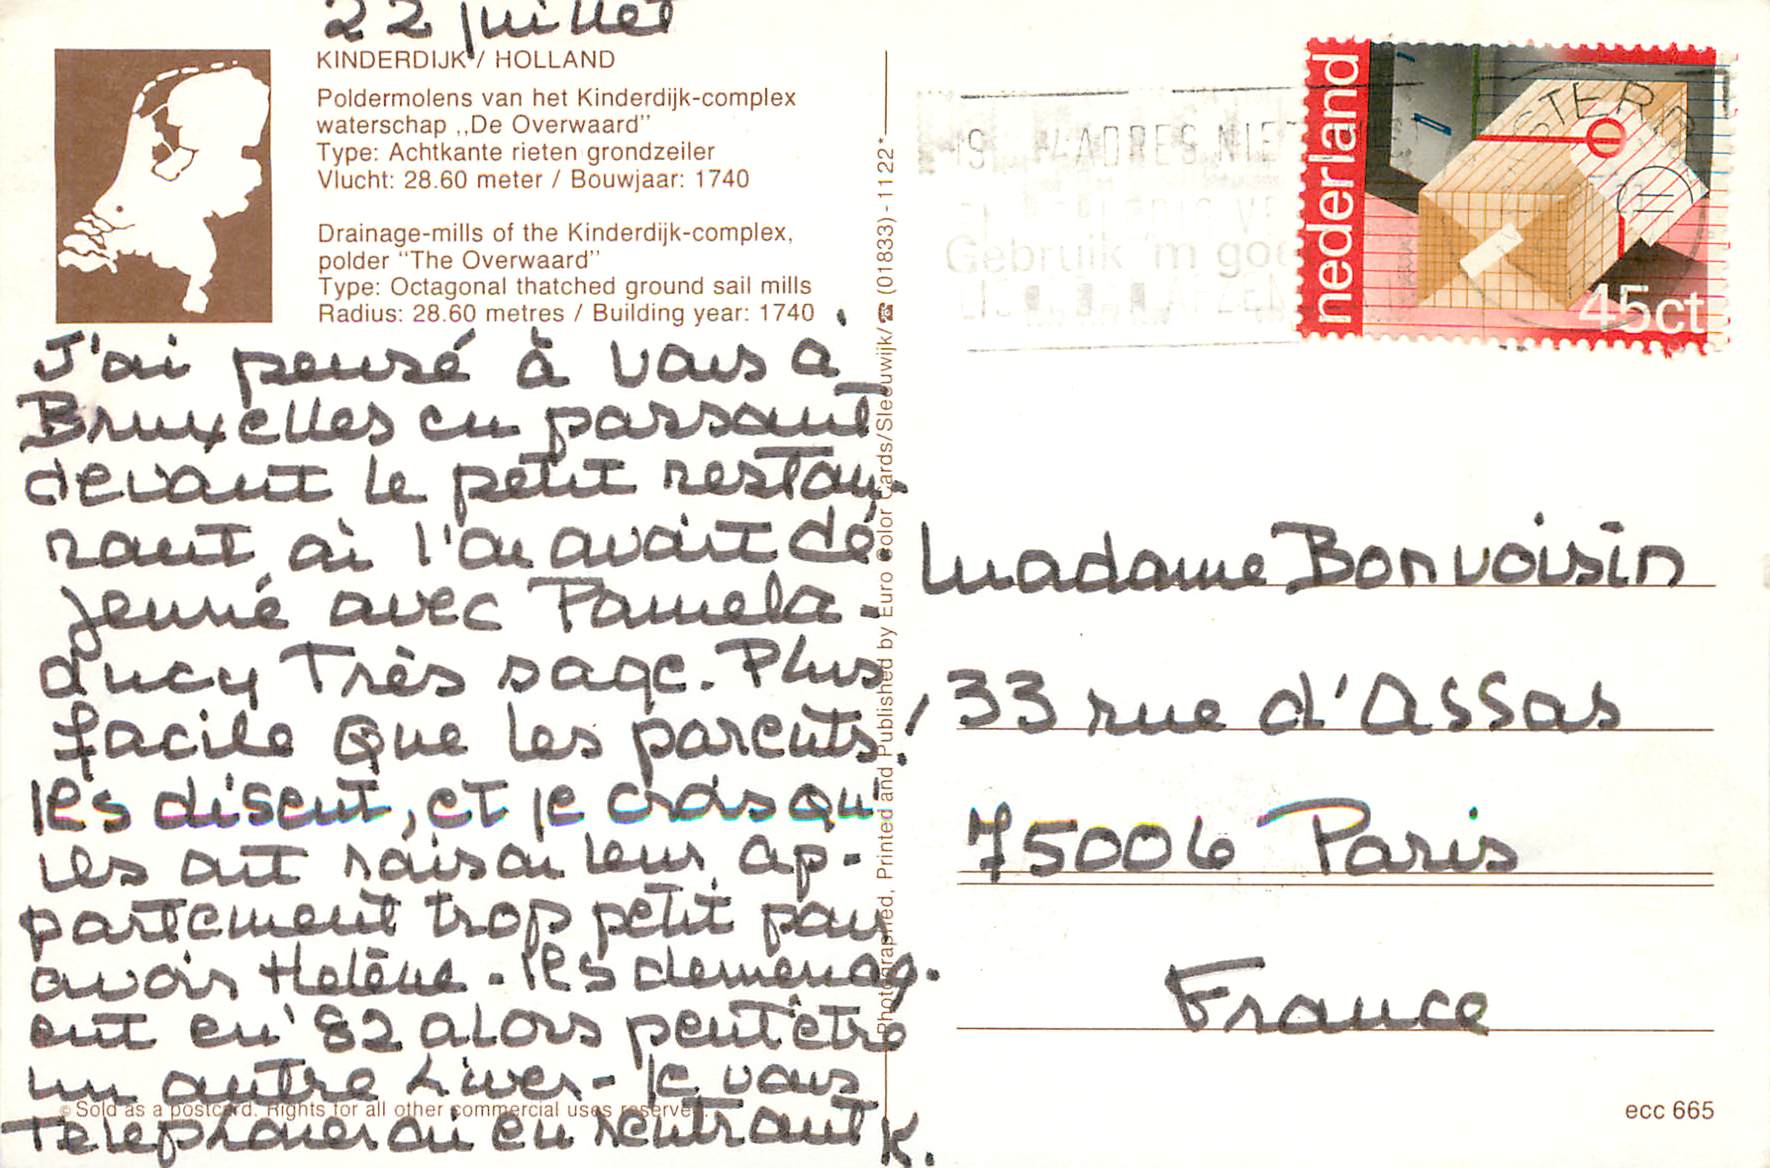 22 juillet
KINDERDIJK / HOLLAND
Poldermolens van het Kinderdijk-complex
waterschap ,,De Overwaard"
Type: Achtkante rieten grondzeiler
Vlucht: 28.60 meter / Bouwjaar: 1740
Drainage-mills of the Kinderdijk-complex,
polder "The Overwaard"
Type: Octagonal thatched ground sail mills
Radius: 28.60 metres / Building year: 1740
J'ai pensé à vous à
Bruxelles en passant
devant le petit restau-
rant où l'on avait dé
jeuné avec Pamela-
Lucy Très sage. Plus
facile que les parents
les disent, et je crois qu'
iles ont raison leur ap-
partement trop petit pour
avoir Helène - Iles demenag-
ent en '82 alors peut être
un autre hiver - Je vous
telephonerai en rentrant K.
© Sold as a postcard. Rights for all other commercial uses reserved.
Photographed, Printed and Published by Euro Color Cards/Sleeuwijk/☎ (01833) - 1122*
nederland
45ct
ADRES NIE
Gebruik 'm goe
Madame Bonvoisin
33 rue d'Assas
75006 Paris
France
ecc 665